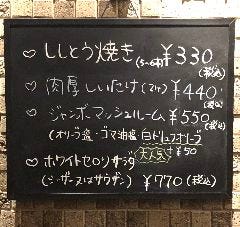 ♡ ししとう焼き(5~6本) ¥330
(税込)
♡ 肉厚しいたけ(2ヶ) ¥440
(税込)
♡ ジャンボマッシュルーム ¥550
(税込)
(オリーブ塩・ゴマ油塩・白トリュフオリーブ
大人気 +¥50
♡ ホワイトセロリサラダ
(シーザー又はサウザン) ¥770(税込)